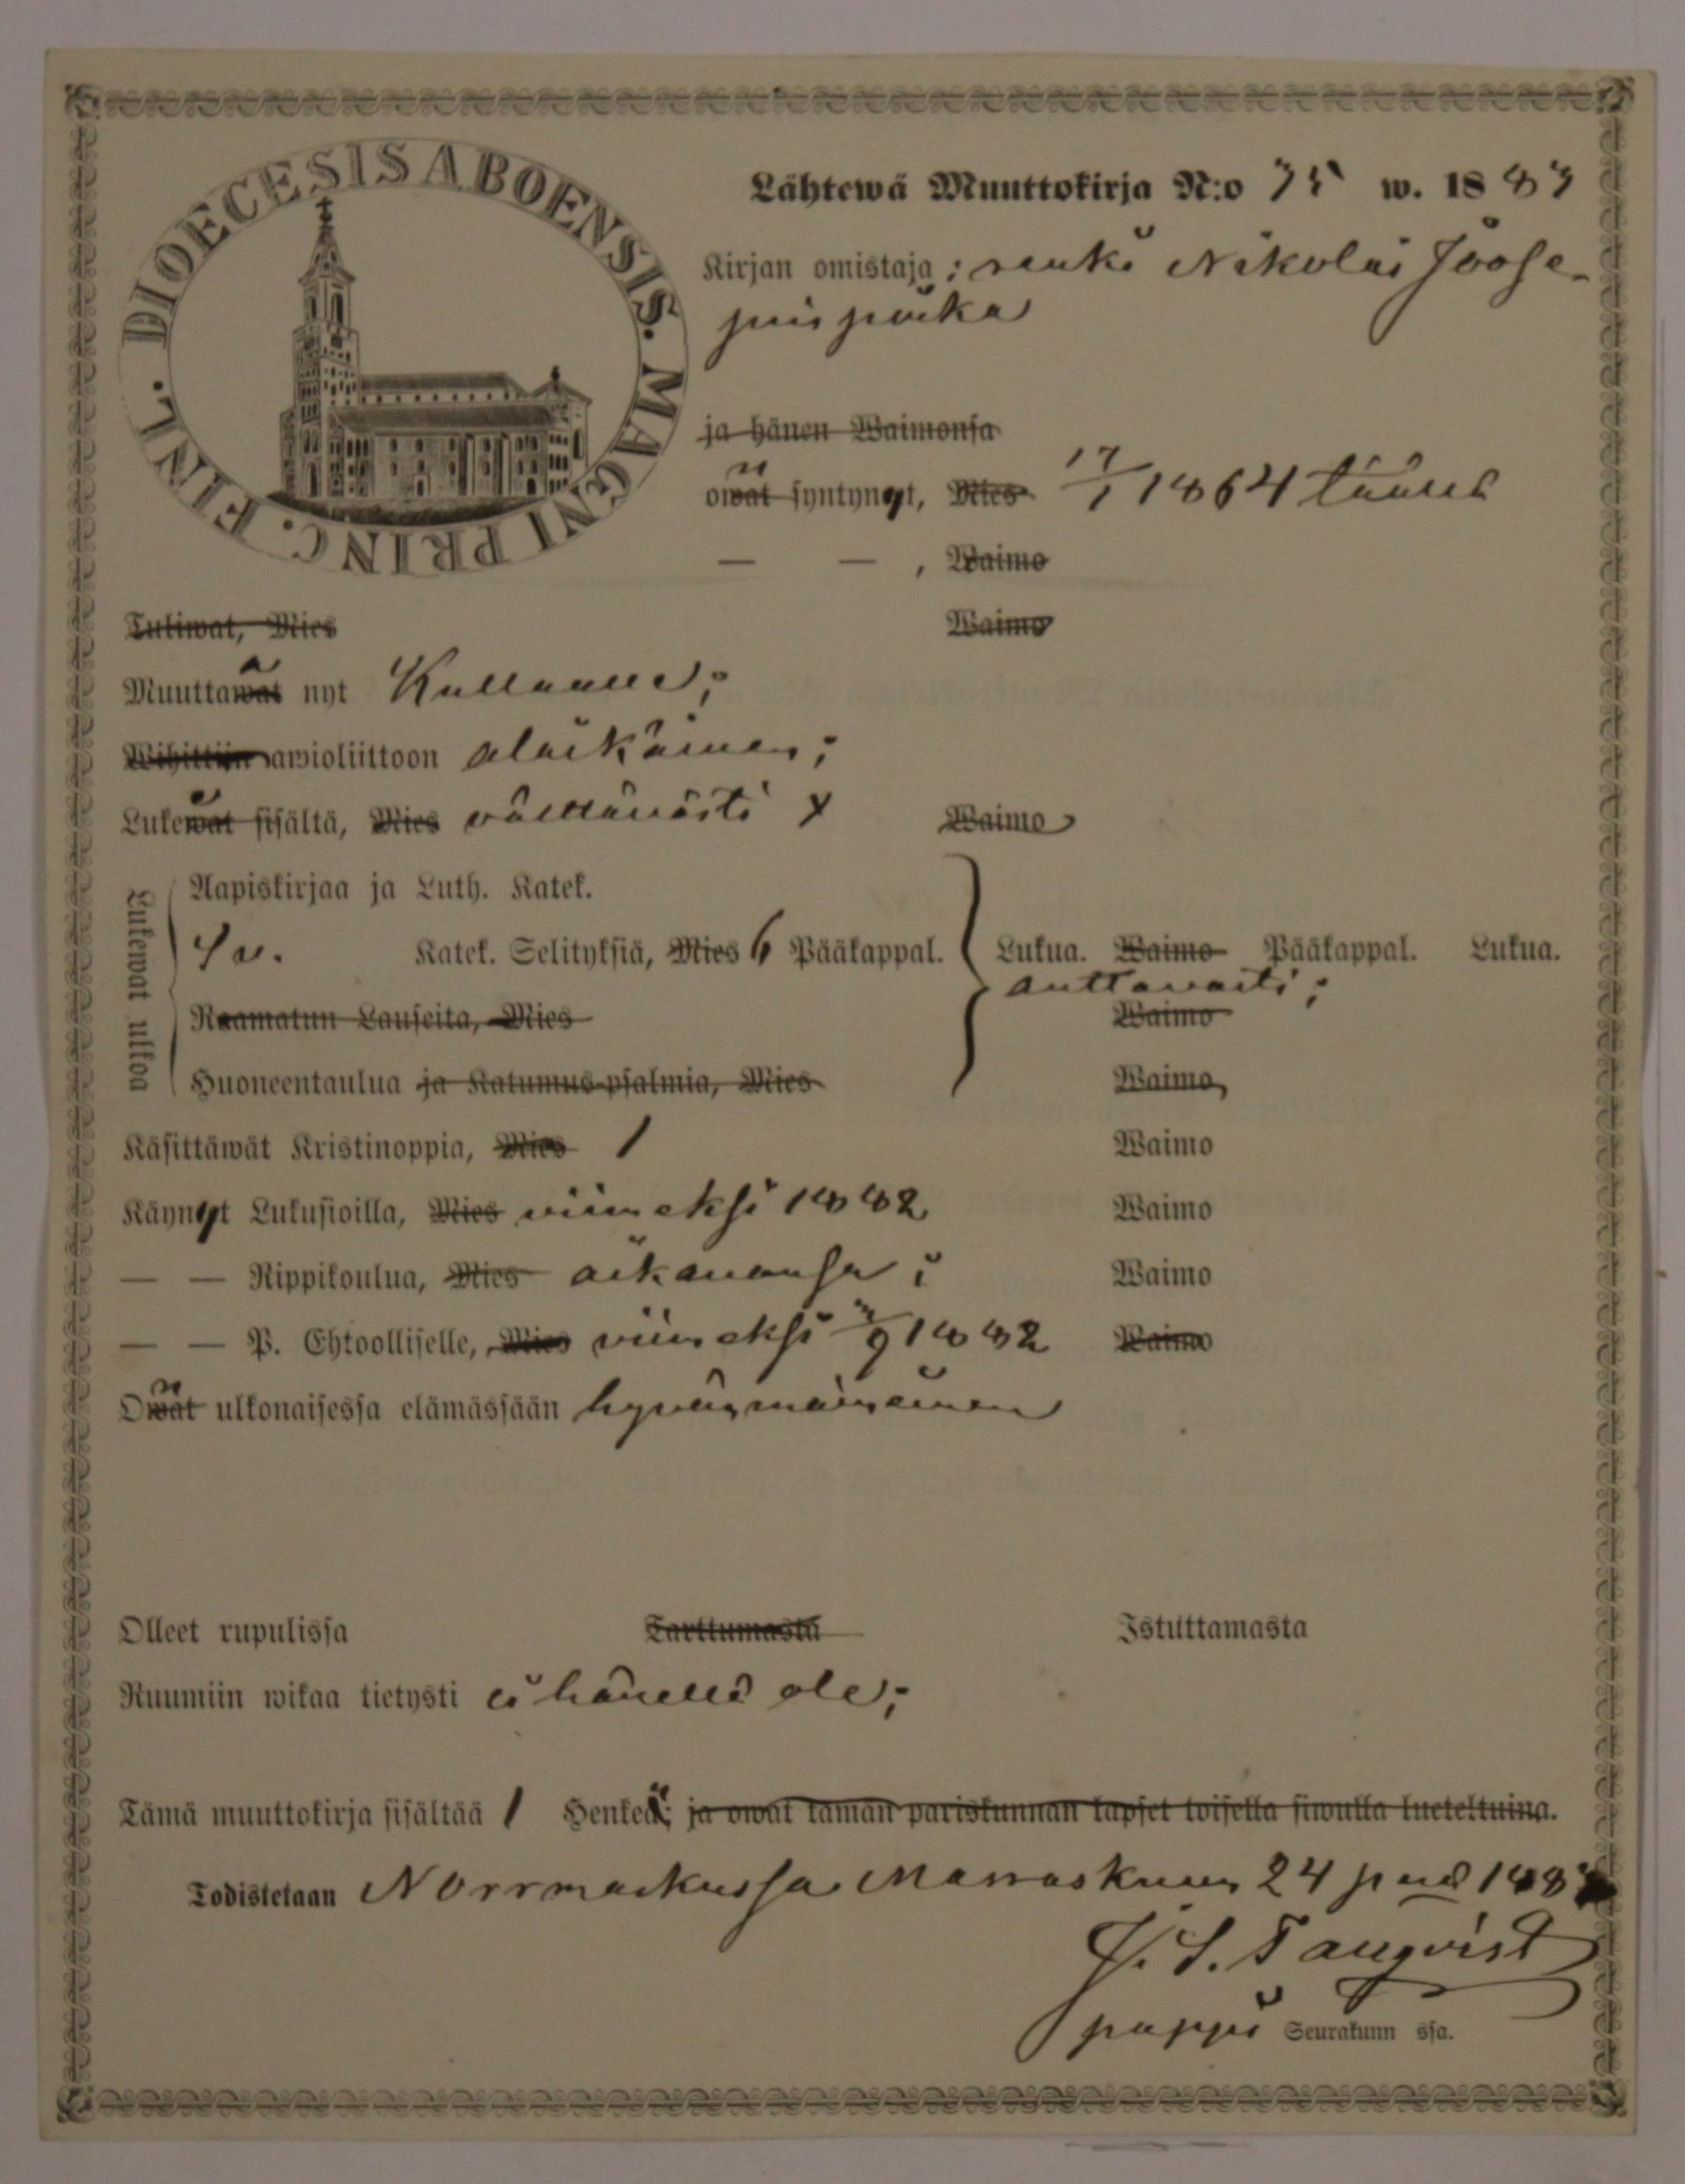 DIOECESIS ABOENSIS. MAGNI PRINC. FINL.
Lähtewä Muuttokirja N:o 75 w. 1883
Kirjan omistaja: renki Nikolai Joose-
pinpoika
ja hänen Waimonsa
owat syntynyt, Mies 17/1 1864 täällä
— — , Waimo
Tuliwat, Mies Waimo
Muuttawat nyt Kullaalle;
Wihittiin awioliittoon alaikäinen;
Lukewat sisältä, Mies välttävästi x Waimo
Lukewat ulkoa
Aapiskirjaa ja Luth. Katek.
Katek. Selityksiä, Mies 6 Pääkappal. Lukua. Waimo Pääkappal. Lukua.
auttavasti;
Raamatun Lauseita, Mies Waimo
Huoneentaulua ja Katumus-psalmia, Mies Waimo
Käsittäwät Kristinoppia, Mies 1 Waimo
Käynyt Lukusioilla, Mies viimeksi 1882 Waimo
— — Rippikoulua, Mies aikananssa; Waimo
— — P. Ehtoolliselle, Mies viimeksi /9 1882 Waimo
Owat ulkonaisessa elämässään hyvänmaineinen
Olleet rupulissa Tarttumasta Istuttamasta
Ruumiin wikaa tietysti ei hänellä ole;
Tämä muuttokirja sisältää 1 Henkeä; ja owat tämän pariskunnan lapset toisella siwulla lueteltuina.
Todistetaan Norrmarkussa Marraskuun 24 pnä 1883
Tanqvist
pappi Seurakunn ssa.